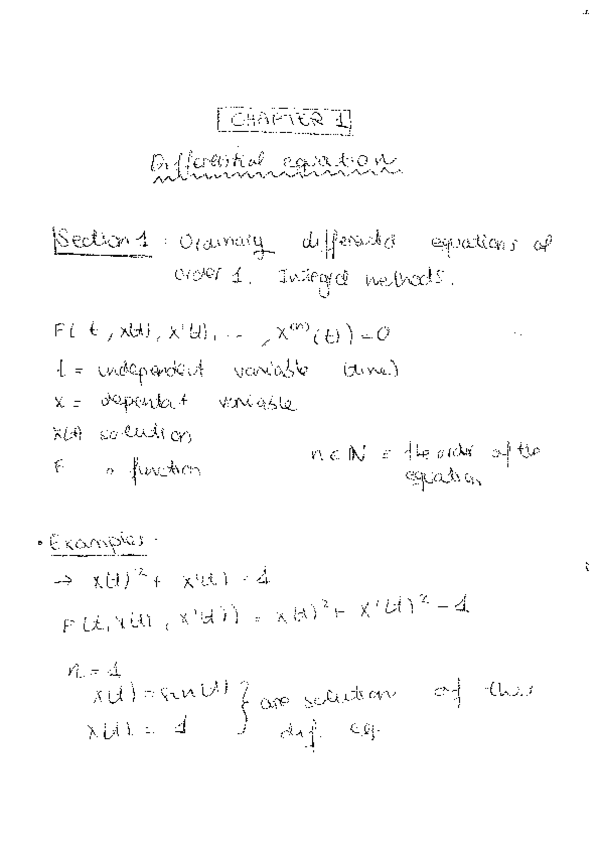 CHAPTER 1
Differential equation
Section 1 : Ordinary differential equations of
order 1. Integral methods.
F( t , x(t), x'(t), ... , x⁽ⁿ⁾(t) ) = 0
t = independent variable (time)
x = dependat variable
x(t) solution
F a function
n ∈ ℕ = the order of the
equation
• Examples.
→ x(t)² + x'(t) = 1
F(t, x(t), x'(t)) = x(t)² + x'(t)² - 1
n = 1
x(t) = sin(t) } are solution of this
x(t) = 1 } dif. eq.